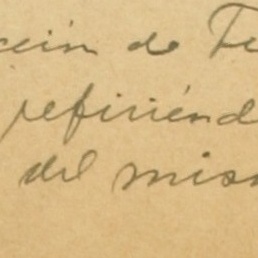 ción de Fe
refiriénd
del mis